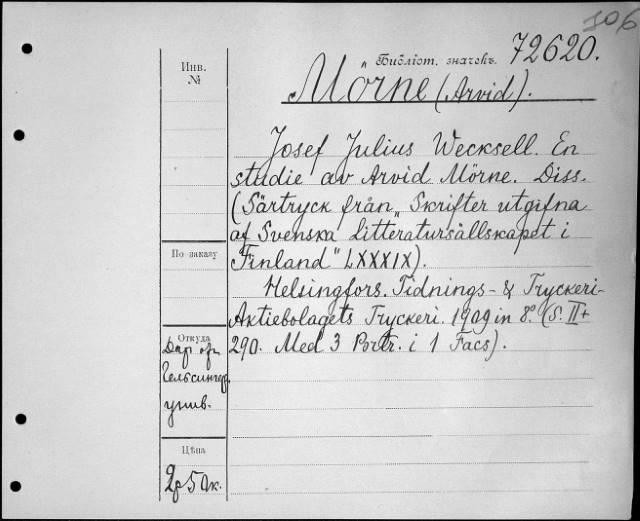 106
Библіот. значекъ. 72620.
Инв.
№
Mörne (Arvid).
Josef Julius Wecksell. En
studie av Arvid Mörne. Diss.
(Särtryck från „Skrifter utgifna
af Svenska Litteratursällskapet i
Finland" LXXXIX).
По заказу
Helsingfors. Tidnings- & Tryckeri-
Aktiebolagets Tryckeri. 1909 in 8°. (S. II+
290. Med 3 Portr. i 1 Facs).
Откуда
Дар
Гельсингф.
унив.
Цѣна